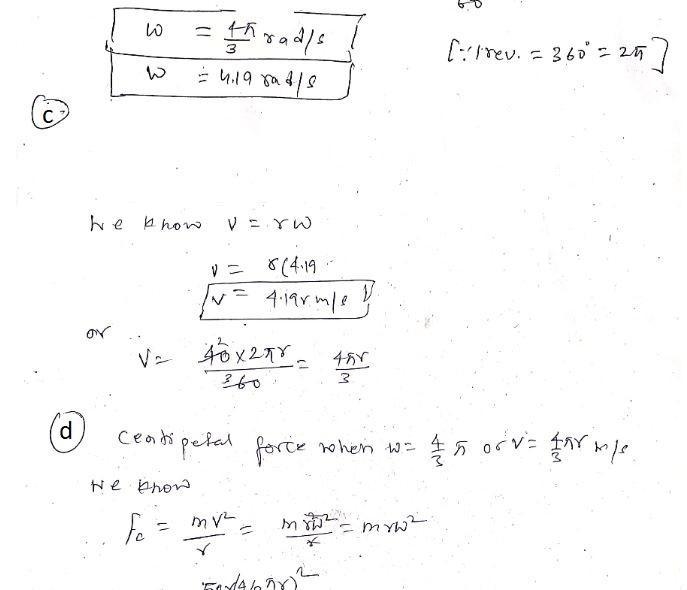 ω = 4π/3 rad/s
[∵ 1 rev. = 360° = 2π]
ω = 4.19 rad/s
c
We know v = rω
v = r(4.19
v = 4.19r m/s
or
v = 40×2πr/360 = 4πr/3
d Centripetal force when ω = 4/3 π or v = 4/3 πr m/s
We know
Fc = mv²/r = mr²ω²/r = mrω²